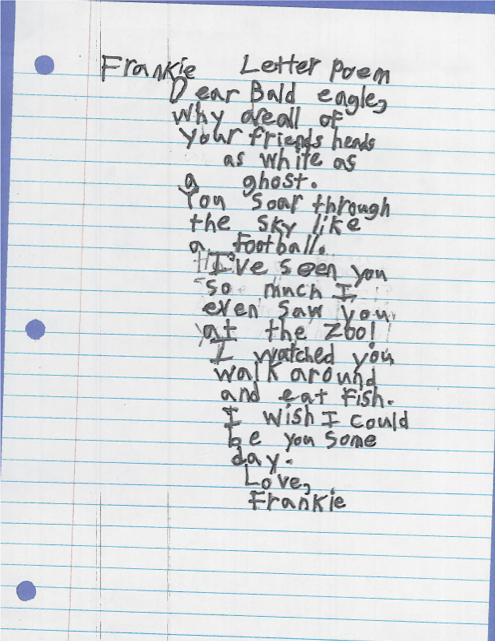 Frankie Letter Poem
Dear Bald eagle,
Why are all of
your friends heads
as white as
a ghost.
You soar through
the sky like
a football.
I've seen you
so much I
even saw you
at the zoo!
I watched you
walk around
and eat fish.
I wish I could
be you some
day.
Love,
Frankie